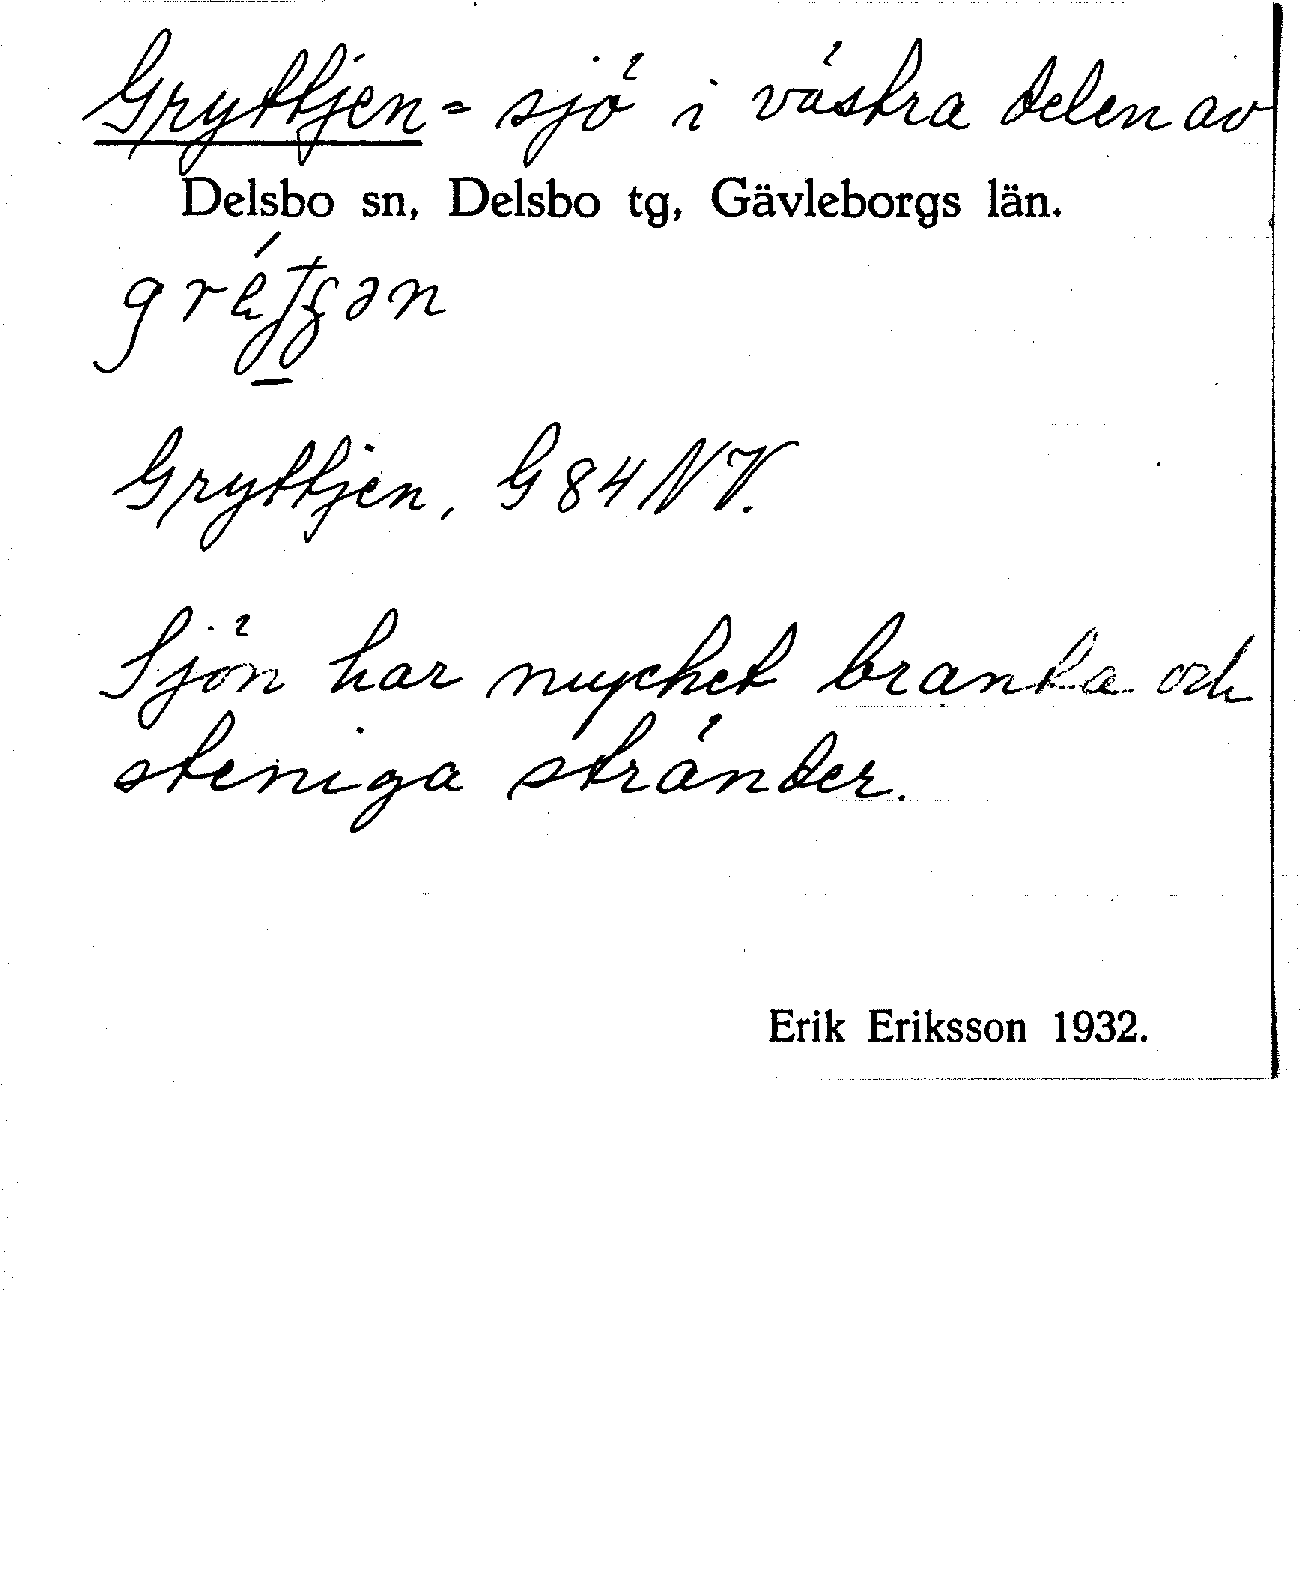 Gryttjen = sjö i västra delen av
Delsbo sn, Delsbo tg, Gävleborgs län.
Gryttjen, G 84 NV.
Sjön har mycket branta och
steniga stränder.
Erik Eriksson 1932.